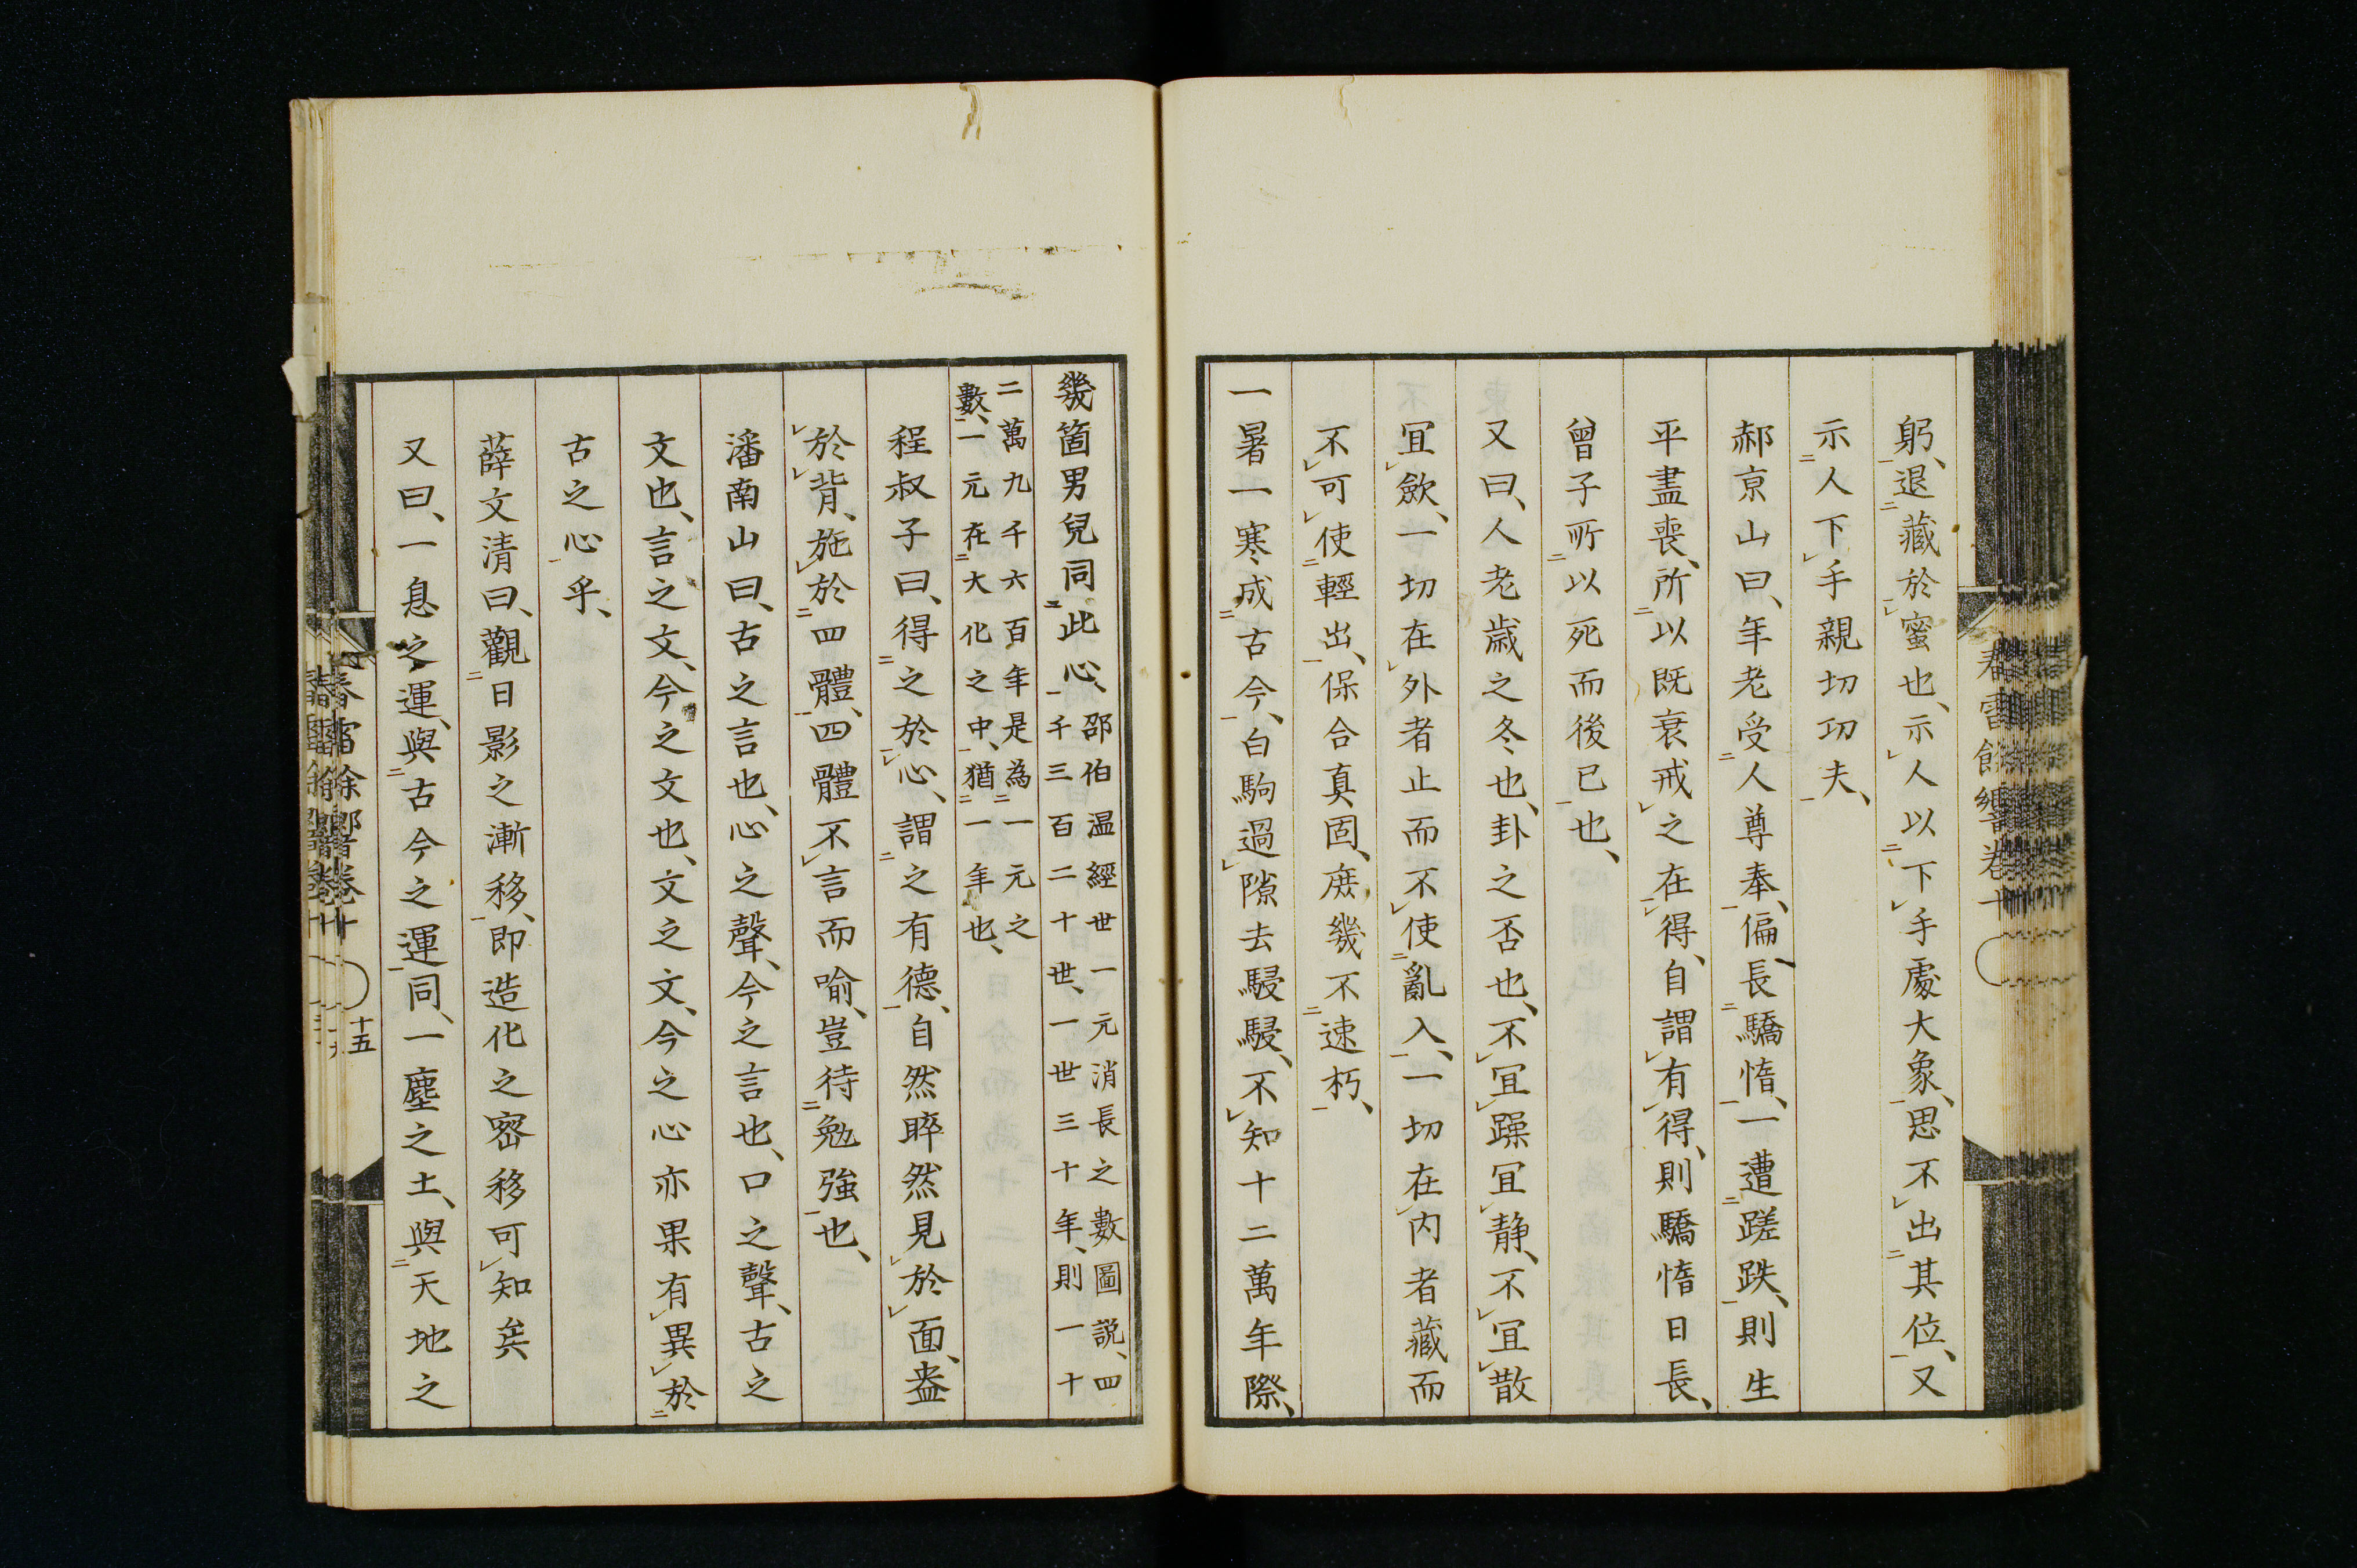 躬、退藏於蜜也、示人以下手處大象、思不出其位、又
示人下手親切功夫、
郝京山曰、年老受人尊奉、偏長驕惰、一遭蹉跌、則生
平盡喪、所以既衰戒之在得、自謂有得、則驕惰日長、
曾子所以死而後已也、
又曰、人老歲之冬也、卦之否也、不宜躁宜靜、不宜散
宜歛、一切在外者止而不使亂入、一切在内者藏而
不可使輕出、保合真固、庶幾不速朽、
一暑一寒成古今、白駒過隙去駸駸、不知十二萬年際、
幾箇男兒同此心、邵伯温經世一元消長之數圖説、四
千三百二十世、一世三十年、則一十
二萬九千六百年是為一元之
數、一元在大化之中、猶一年也、
程叔子曰、得之於心、謂之有德、自然睟然見於面、盎
於背、施於四體、四體不言而喻、豈待勉強也、
潘南山曰、古之言也、心之聲、今之言也、口之聲、古之
文也、言之文、今之文也、文之文、今之心亦果有異於
古之心乎、
薛文清曰、觀日影之漸移、即造化之密移可知矣
又曰、一息之運、與古今之運同、一塵之土、與天地之
春雷餘響卷十
十五